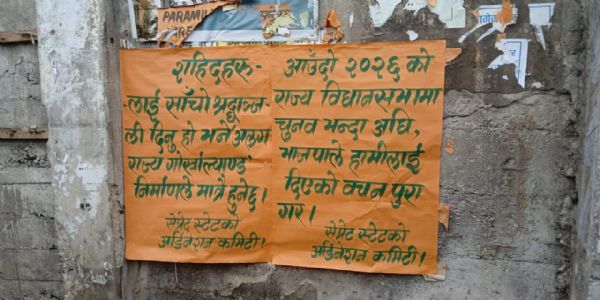 PARAMI
शहिदहरू-
-लाई साँचो श्रद्धाञ्ज
ली दिनु हो भने अलग
राज्य गोर्खाल्याण्ड
निर्माणले मात्रै हुनेछ।
सेप्रेट स्टेटको
अर्डिनेशन कमिटी।
आउँदो २०२६ को
राज्य विधानसभामा
चुनव भन्दा अघि,
भाजपाले हामीलाई
दिएको वचन पुरा
गर।
सेप्रेट स्टेटको
अर्डिनेशन कमिटी।